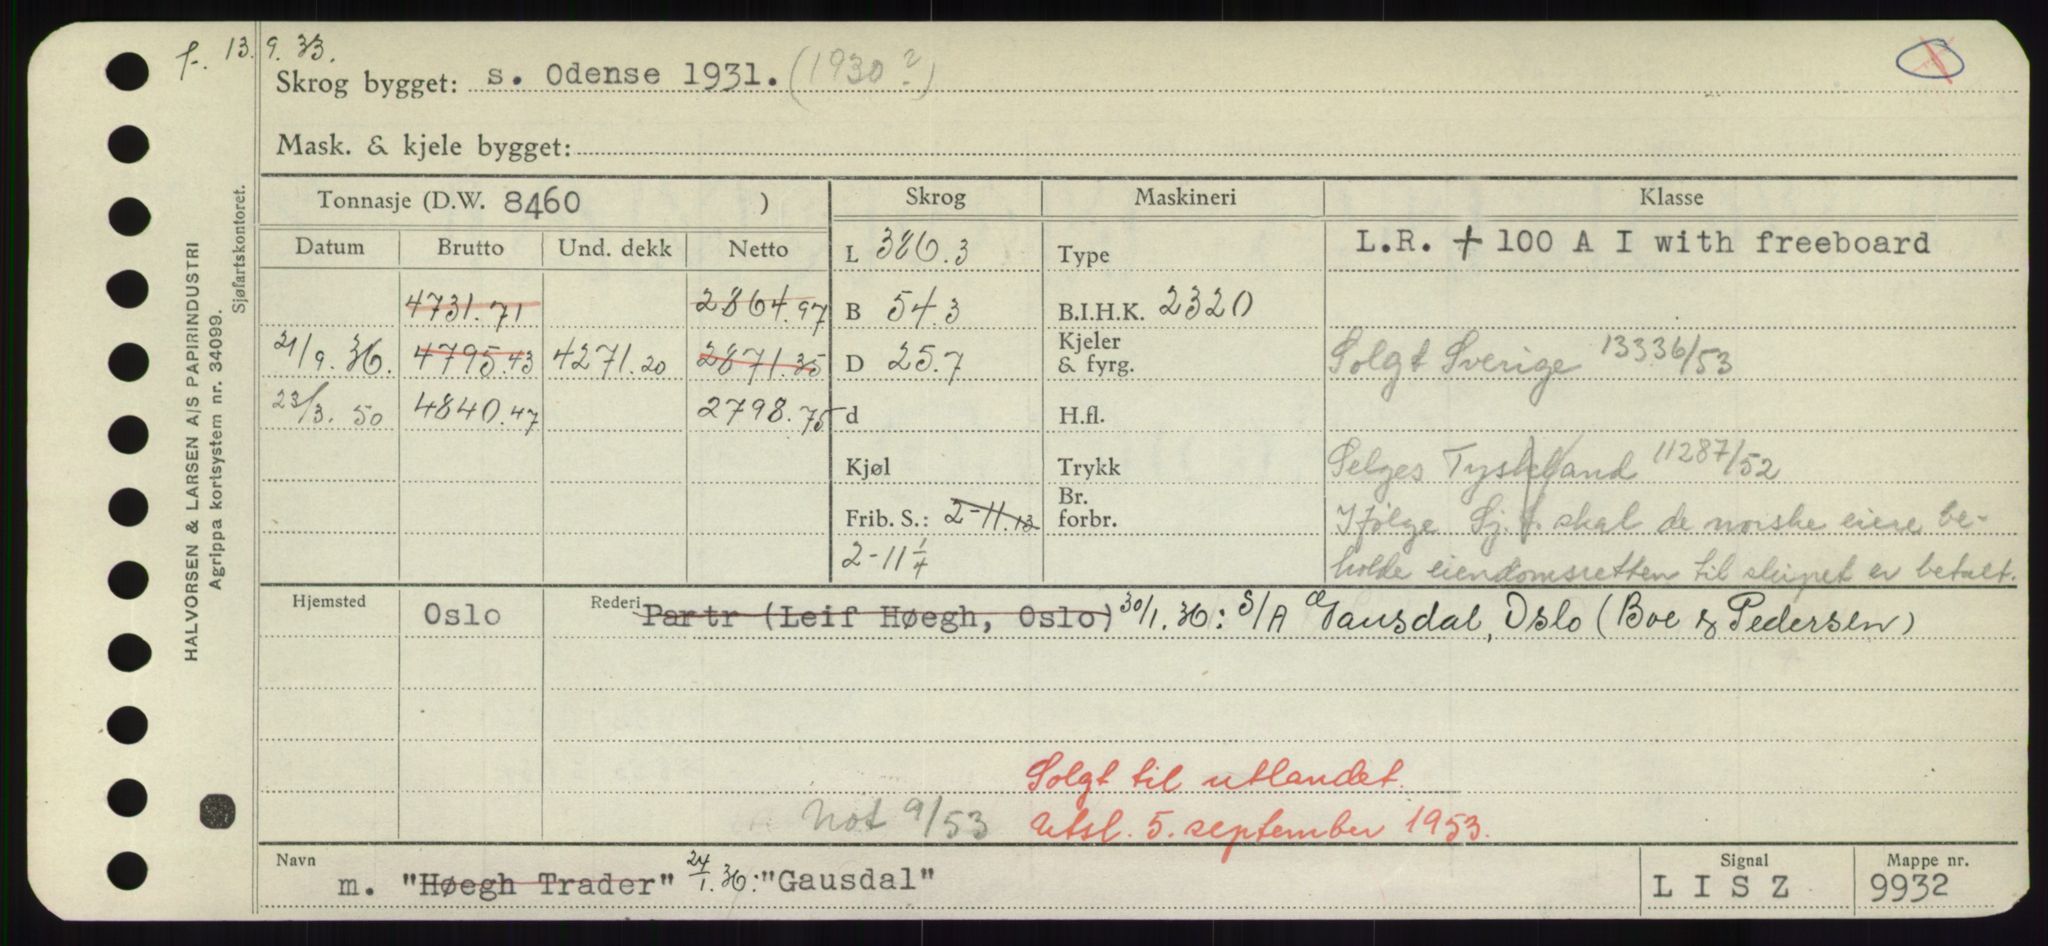 f. 13.9.33.
Skrog bygget: s. Odense 1931. (1930?)
Mask. & kjele bygget:
HALVORSEN & LARSEN A/S PAPIRINDUSTRI
Agrippa kortsystem nr. 34099.
Sjøfartskontoret.
Tonnasje (D.W. 8460 ) Skrog Maskineri Klasse
Datum Brutto Und. dekk Netto L 386.3 Type L.R. + 100 A I with freeboard
4731.71 2864.97 B 54.3 B.I.H.K. 2320
21/9.36. 4795.43 4271.20 2871.35 D 25.7 Kjeler & fyrg. Solgt Sverige 13336/53
23/3.50 4840.47 2798.75 d H.fl.
Kjøl Trykk Selges Tyskland 11287/52
Frib. S.: 2-11.13 Br. forbr. Ifølge Sj. f. skal de norske eiere be-
2-11 1/4 holde eiendomsretten til skipet er betalt.
Hjemsted Oslo Rederi Partr (Leif Høegh, Oslo) 30/1.36: S/A Gausdal, Oslo (Boe & Pedersen)
Solgt til utlandet.
Not 9/53 Utsl. 5. september 1953.
Navn m. "Høegh Trader" 24/1.36: "Gausdal" Signal L I S Z Mappe nr. 9932